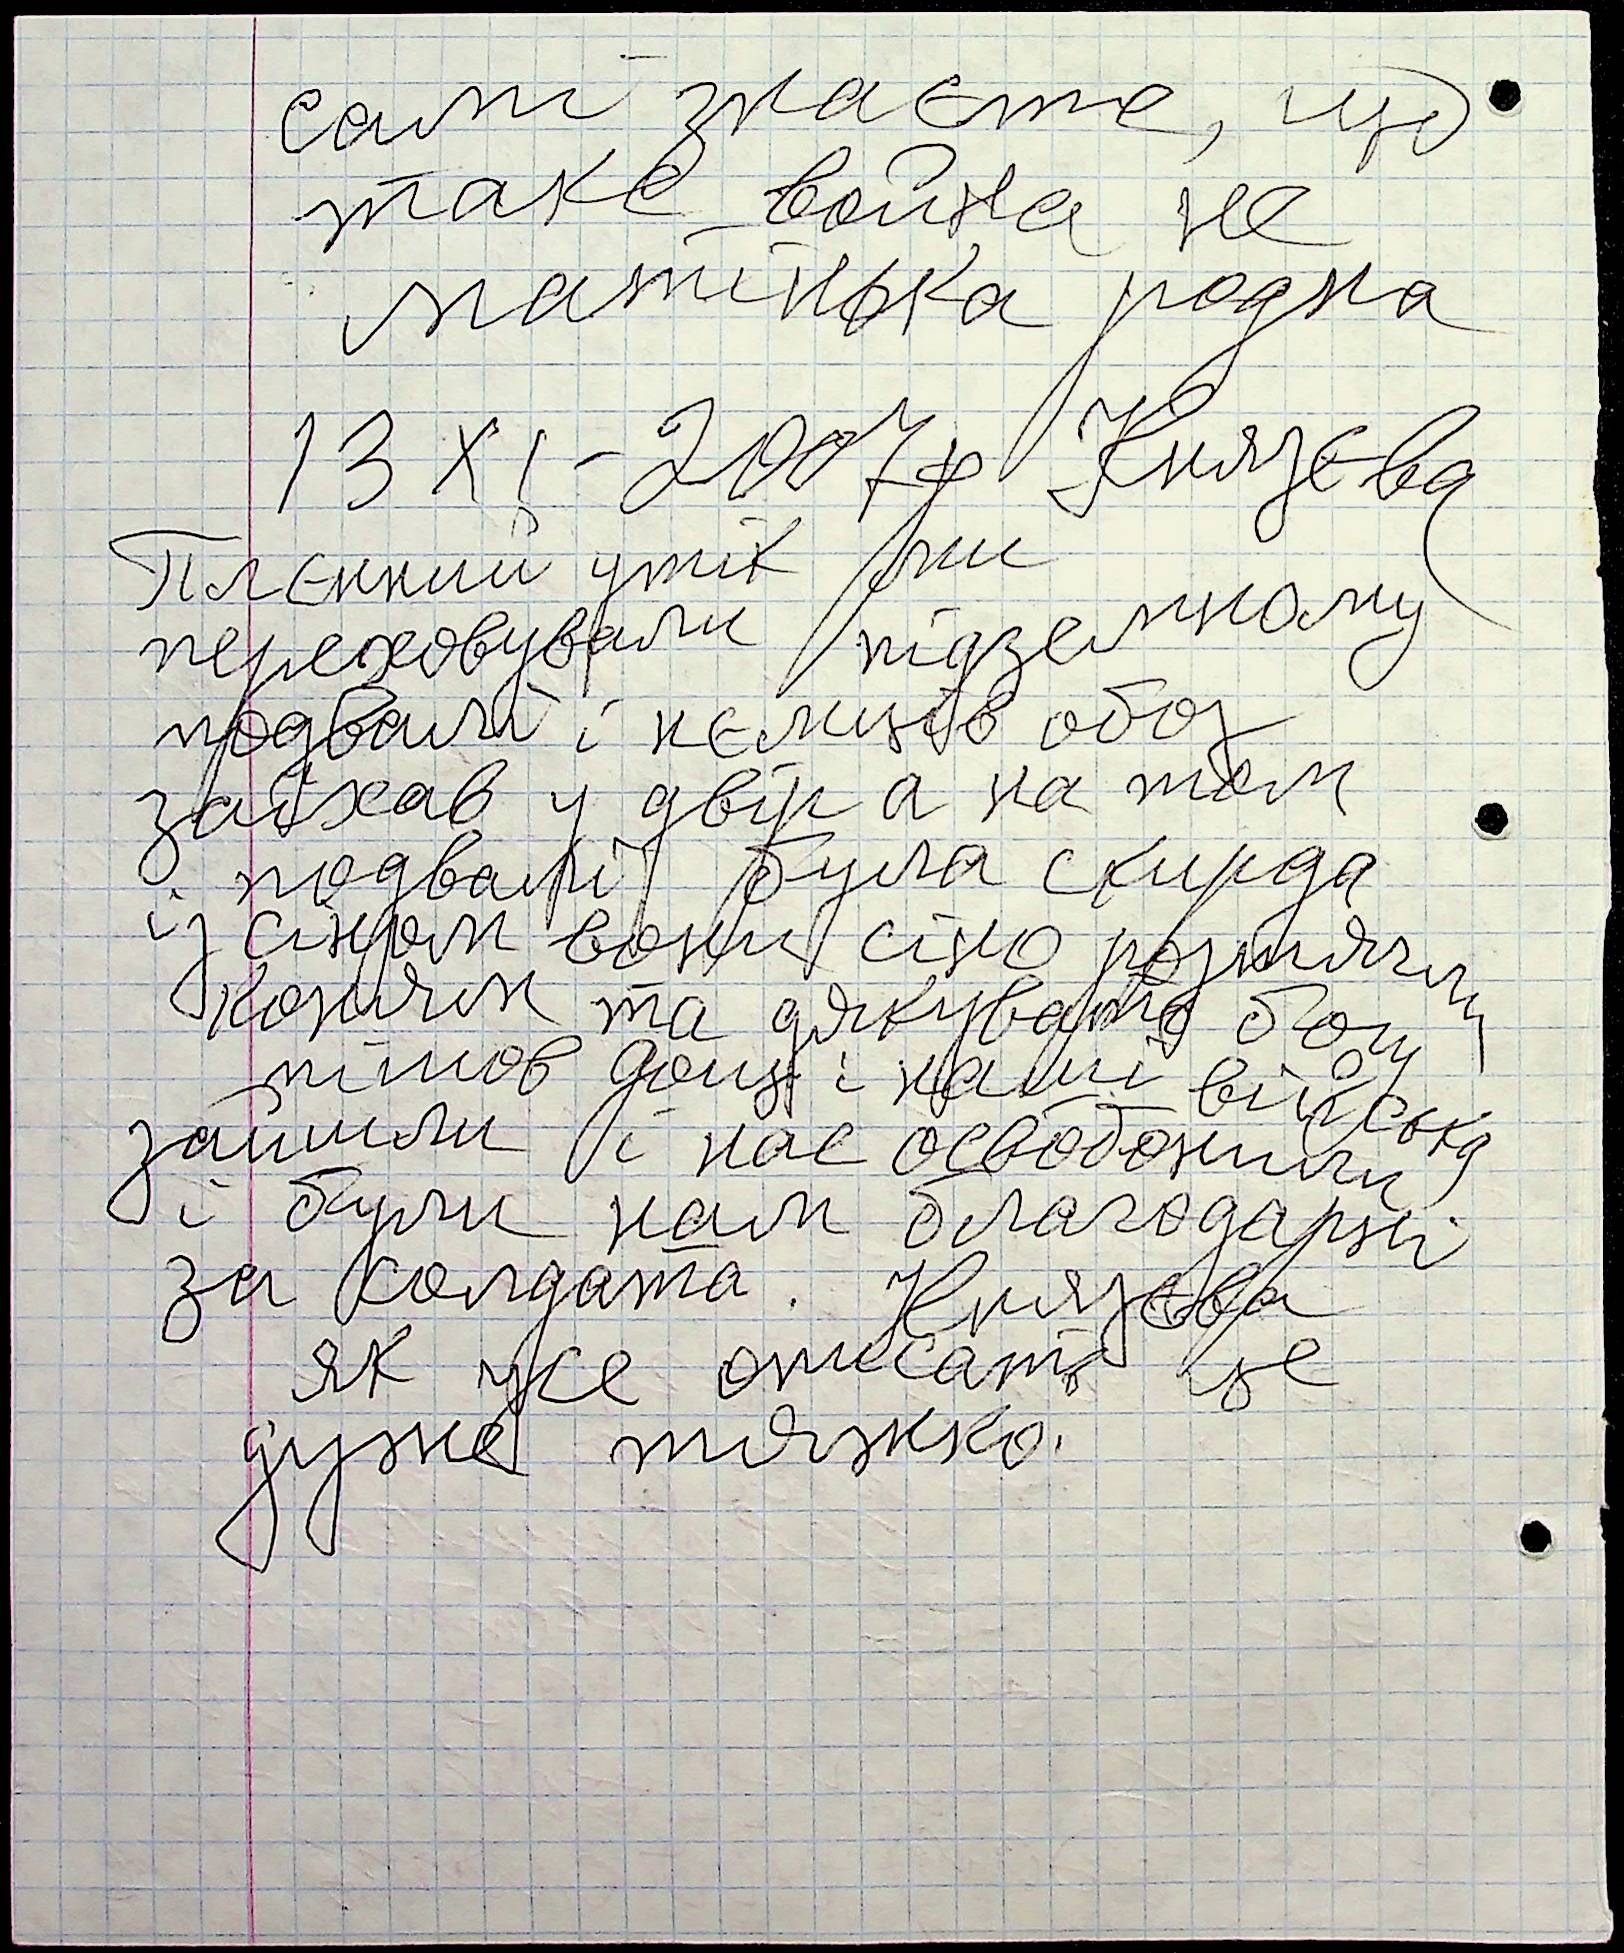 самі знаєте, що
таке война не
матінька родна
13 XI - 2007р Князєва
Плєнний утік ми
переховували підземному
подвалі і нємців обоз
заїхав у двір а на том
і подвалі була скирда
із сіном вони сіно розтягли
коням та дякувать богу
пішов дощ і наші війська
зайшли і нас освободили
і були нам благодарні
за солдата. Князєва
як усе описать це
дуже тяжко.